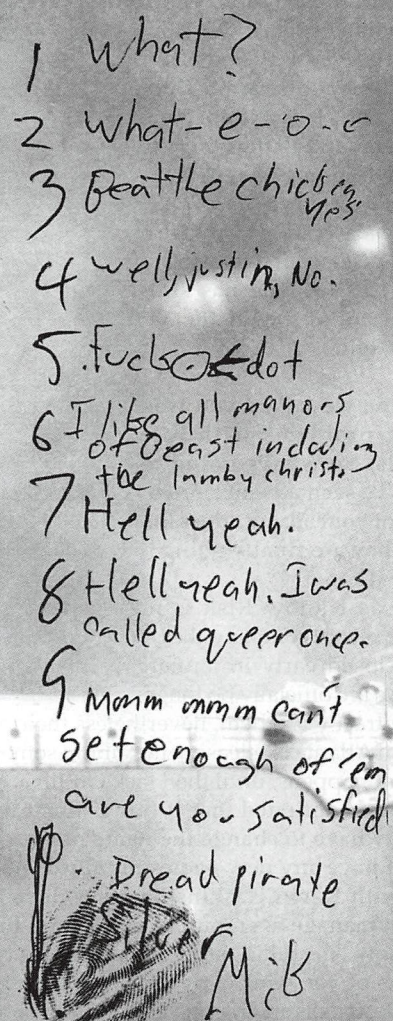 1 What?
2 What-e-o-c
3 Beat the chicken,
yes
4 Well, justin, No.
5. Fucks dot
6 I like all manors
of beast including
the lamby christ.
7 Hell yeah.
8 Hell yeah. I was
called queer once.
9 Mmmm mmm can't
get enough of 'em
are you satisfied
. Dread pirate
Silver
Milk